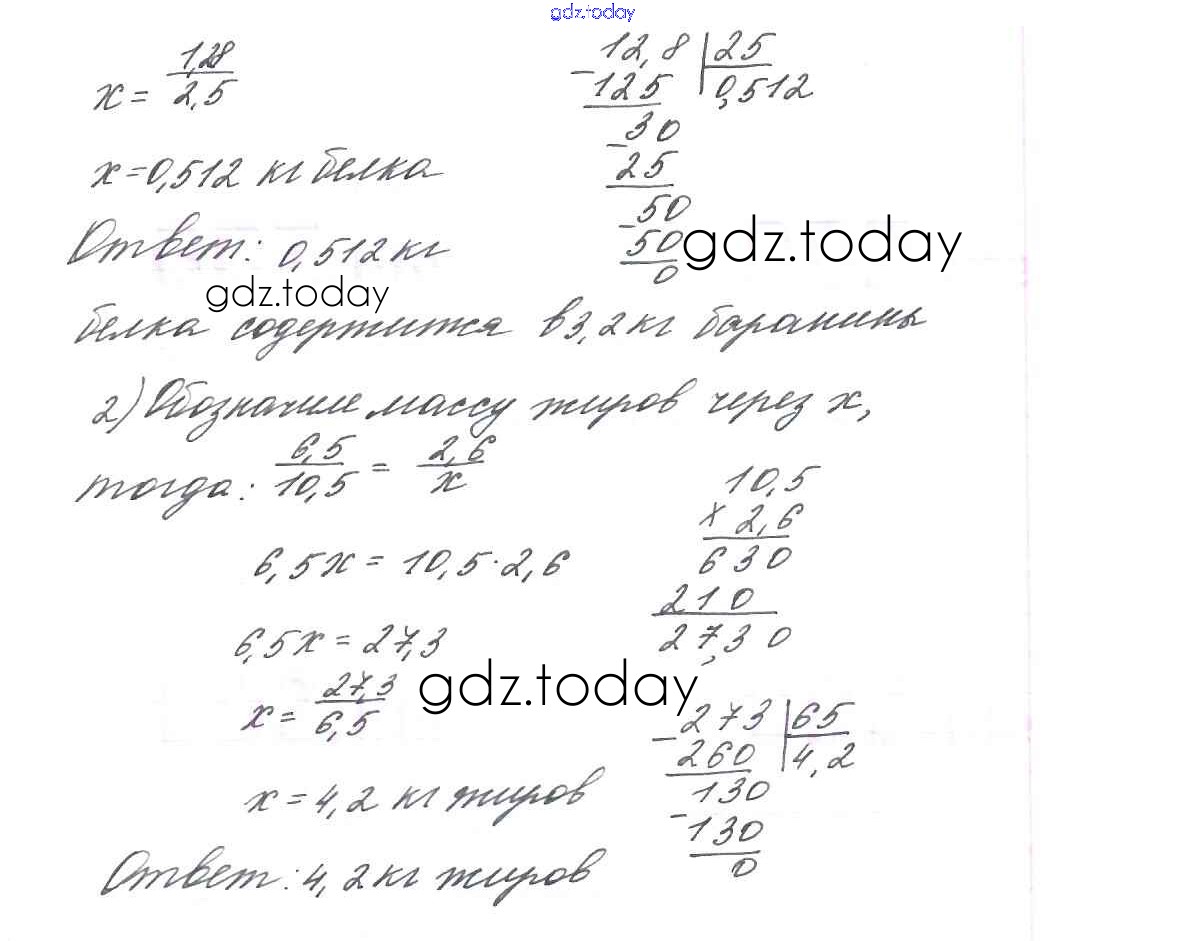 gdz.today
x = 1,28 / 2,5
12,8 | 25
- 125 | 0,512
30
- 25
50
- 50
0
x = 0,512 кг белка
Ответ: 0,512 кг
gdz.today
gdz.today
белка содержится в 3,2 кг баранины
2) Обозначим массу жиров через x,
тогда: 6,5 / 10,5 = 2,6 / x
6,5x = 10,5 · 2,6
6,5x = 27,3
x = 27,3 / 6,5
10,5
x 2,6
630
210
27,30
gdz.today
- 273 | 65
260 | 4,2
130
- 130
0
x = 4,2 кг жиров
Ответ: 4,2 кг жиров